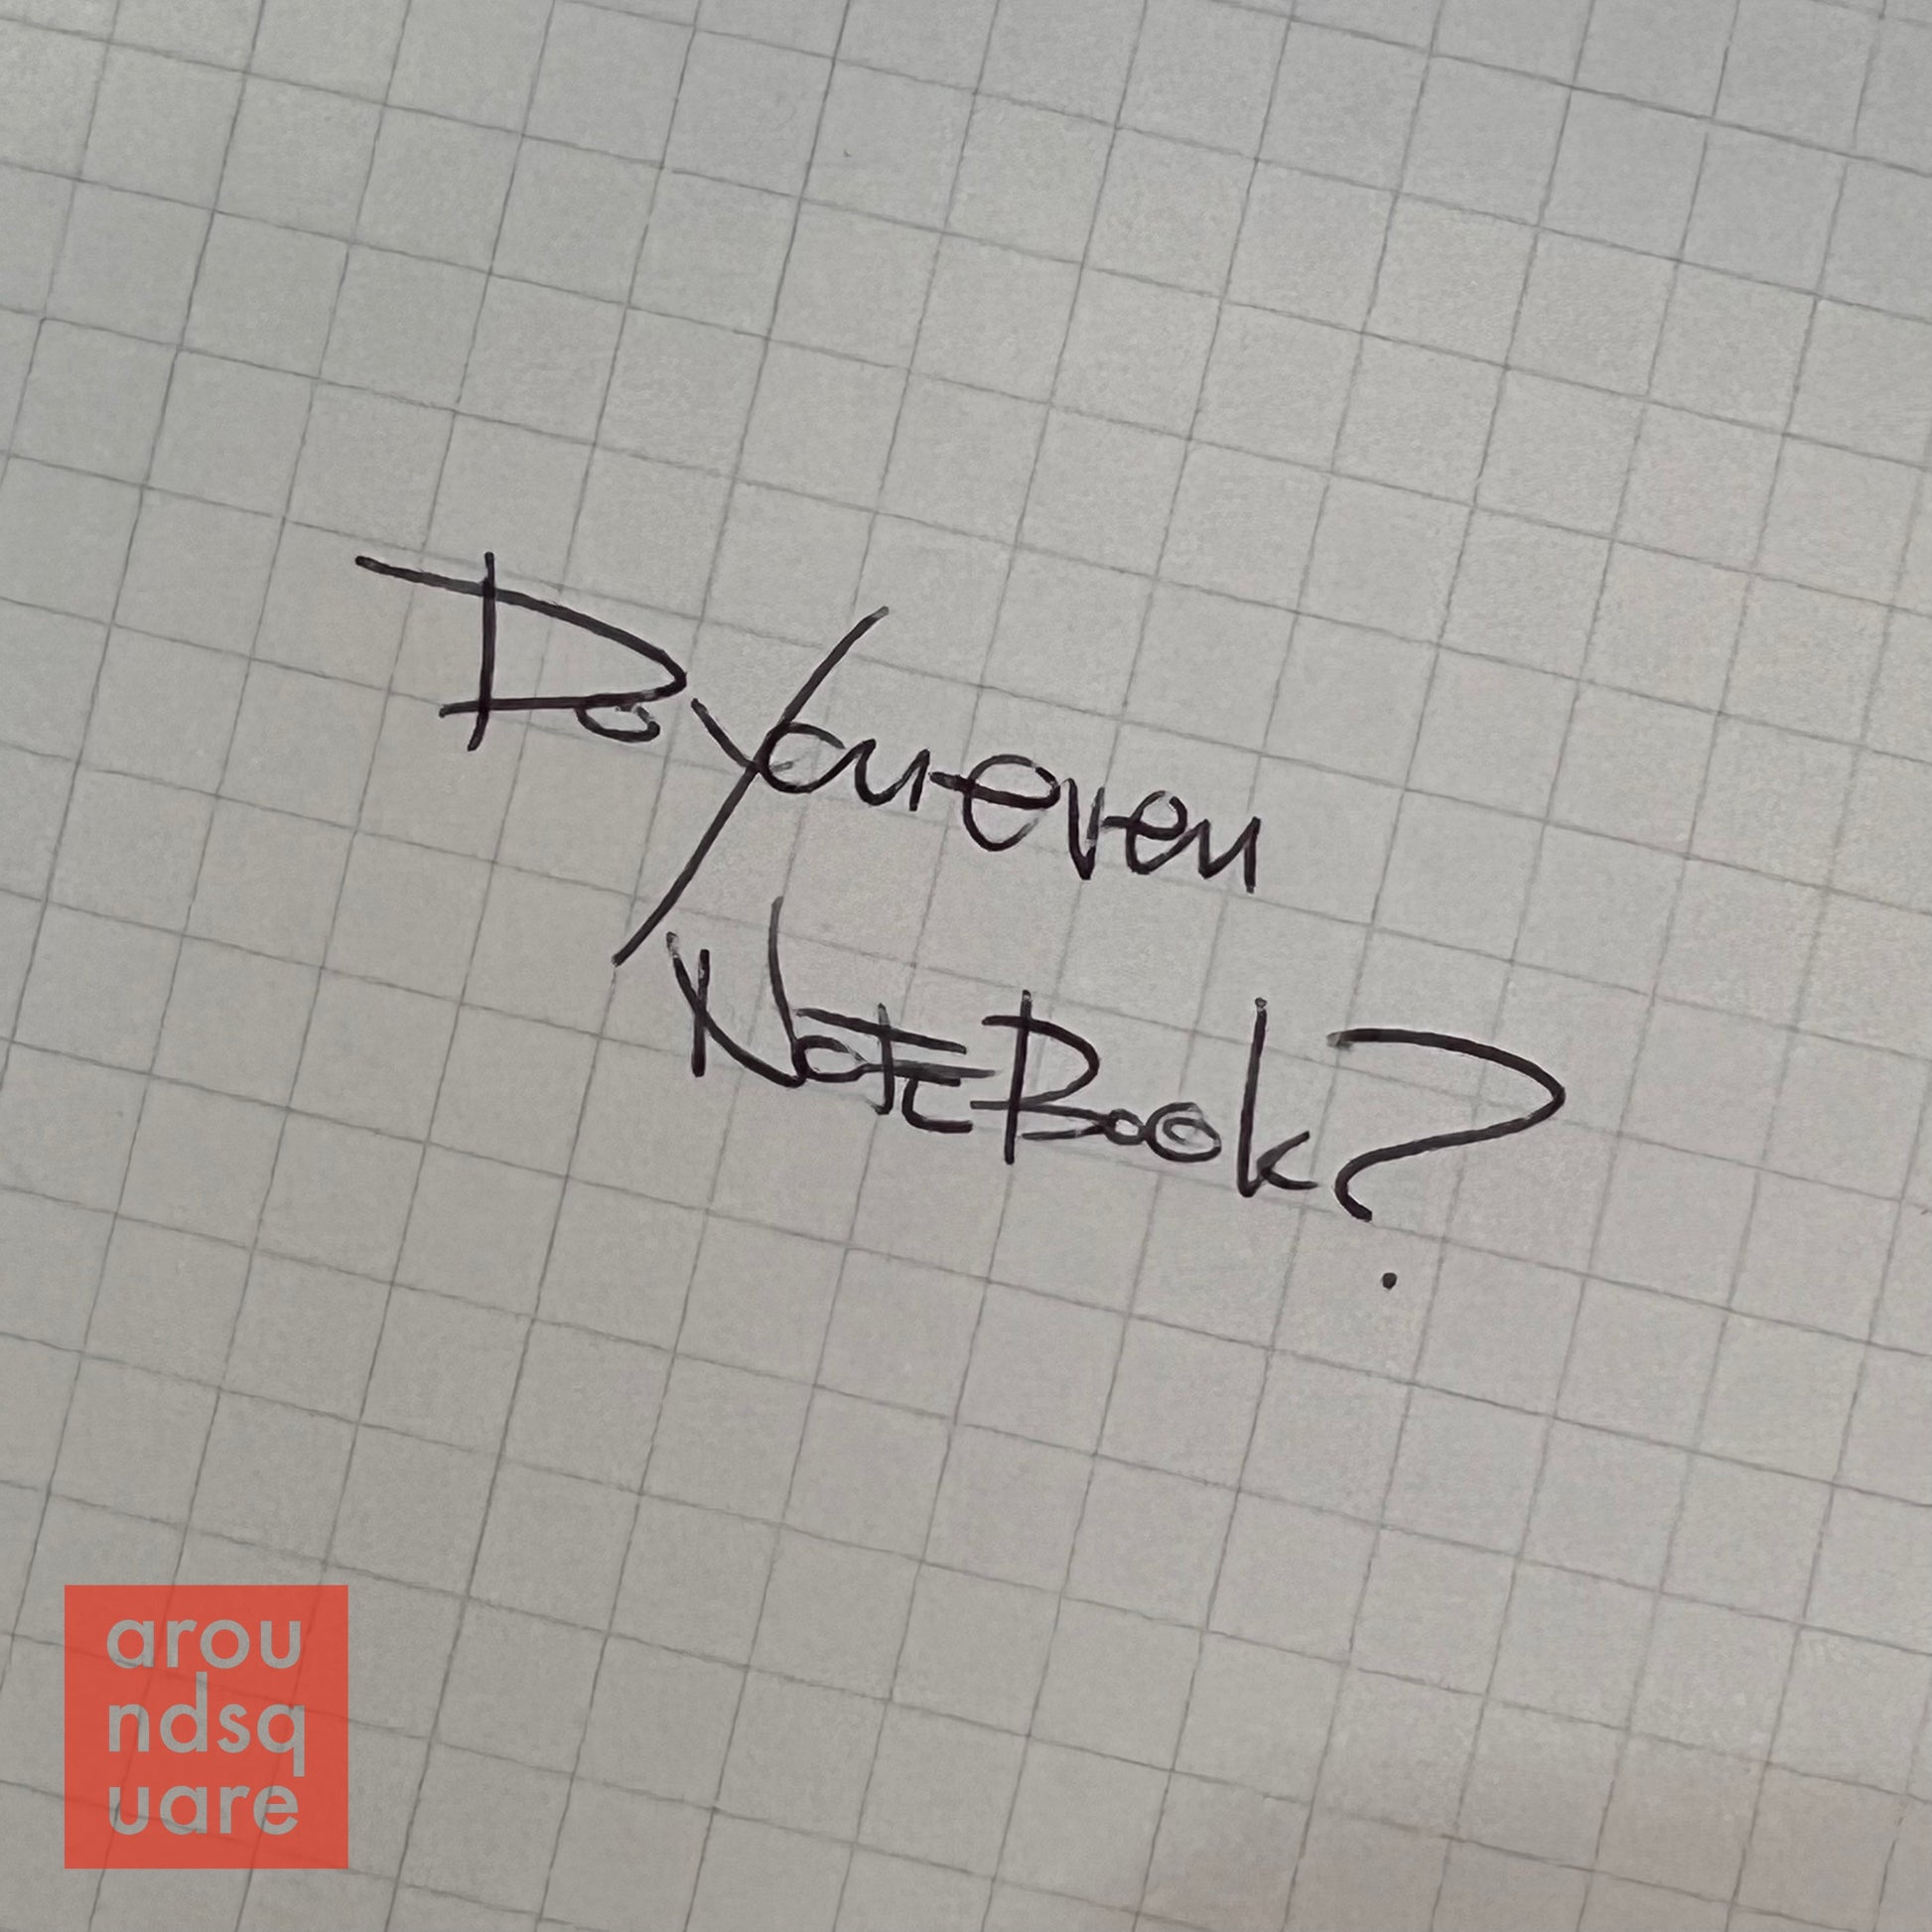 Do You even
NOTEBook?
arou
ndsq
uare